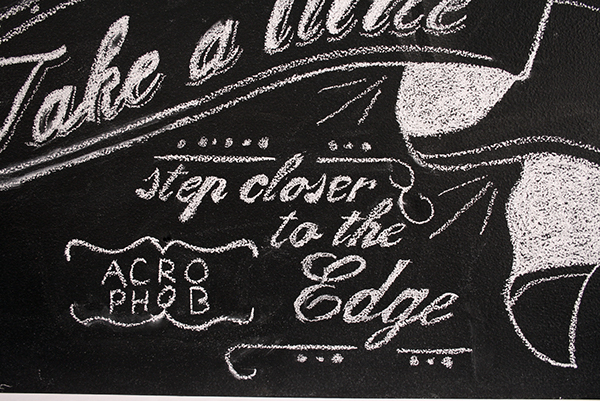 Take a
step closer
to the
Edge
ACRO
PHOB